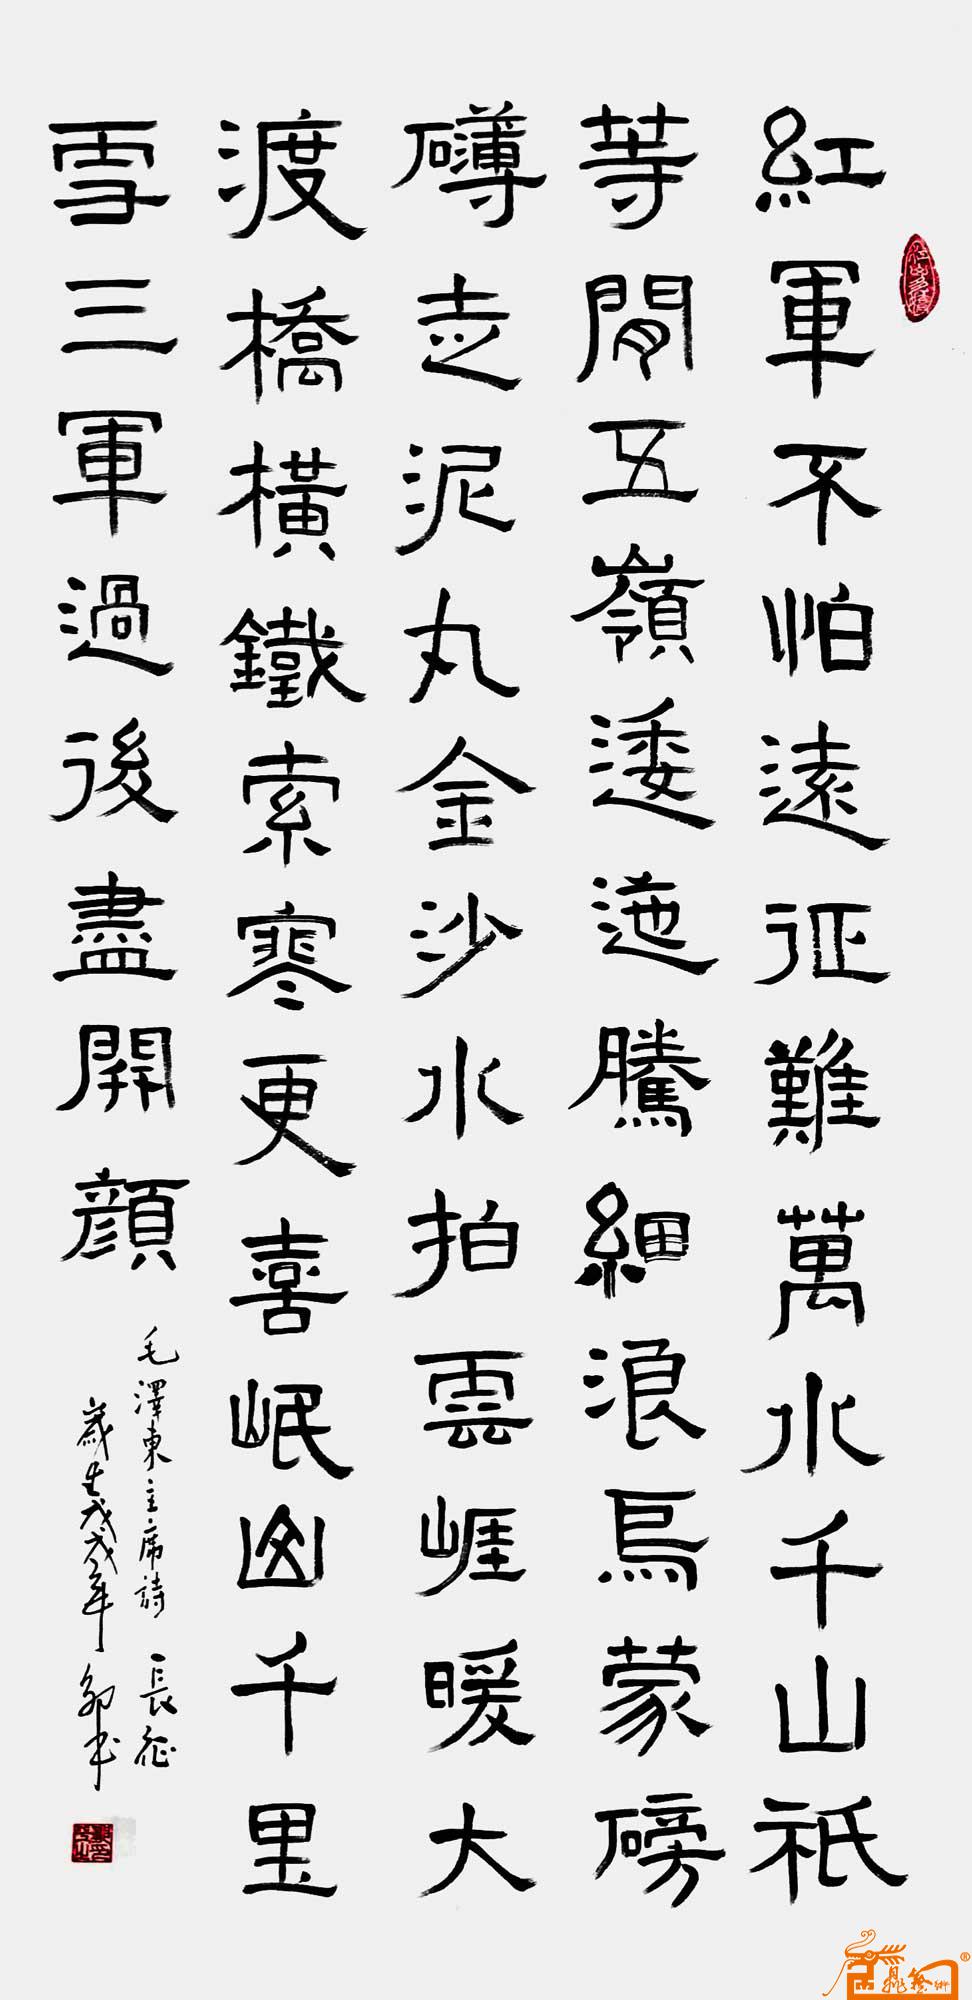 紅軍不怕遠征難萬水千山祇
等閒五嶺逶迤騰細浪烏蒙磅
礴走泥丸金沙水拍雲崖暖大
渡橋橫鐵索寒更喜岷山千里
雪三軍過後盡開顏
毛澤東主席詩 長征
歲生戊戌年